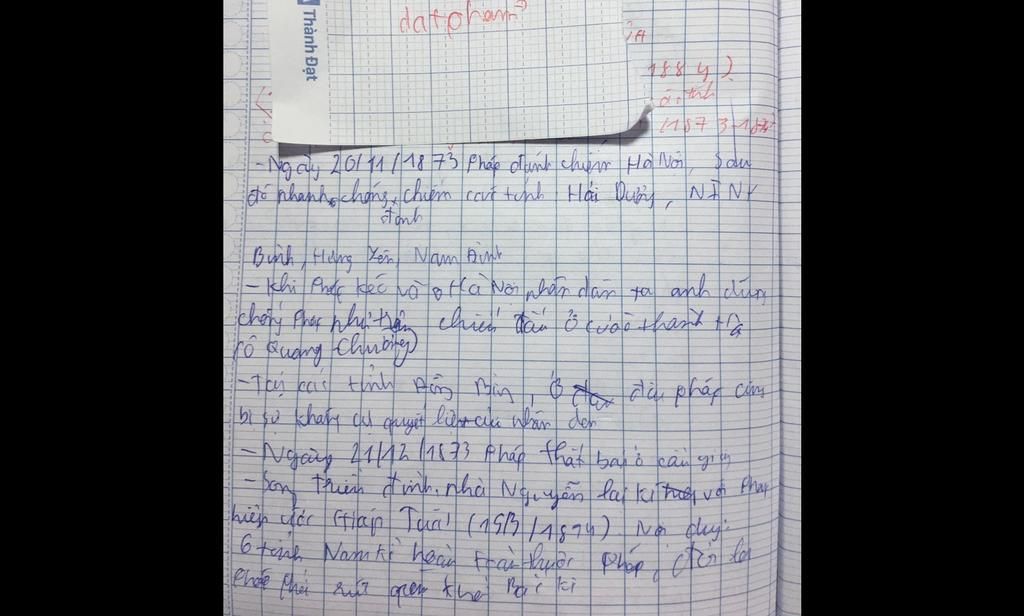 Thành Đạt
datpham
1884)
1873-187
- Ngày 20/11/1873 Pháp đánh chiếm Hà Nội, sau
đó nhanh chóng chiếm các tỉnh Hải Dương, NINH
đánh
Bình, Hưng Yên, Nam Định
- Khi Pháp kéo vào Hà Nội, nhân dân ta anh dũng
chống Pháp như trận chiến đấu ở cửa ô thanh Hà
(Ô Quang Chưởng)
- Tại các tỉnh Đồng Bằng, ở đâu pháp cũng
bị sự kháng cự quyết liệt của nhân dân
- Ngày 21/12/1873 Pháp thất bại ở cầu giấy
- Song triều đình nhà Nguyễn lại kí với Pháp
hiệp ước Giáp Tuất (15/3/1874). Nội dung:
6 tỉnh Nam Kì hoàn toàn thuộc Pháp, đổi lại
Pháp phải rút quân khỏi Bắc kì